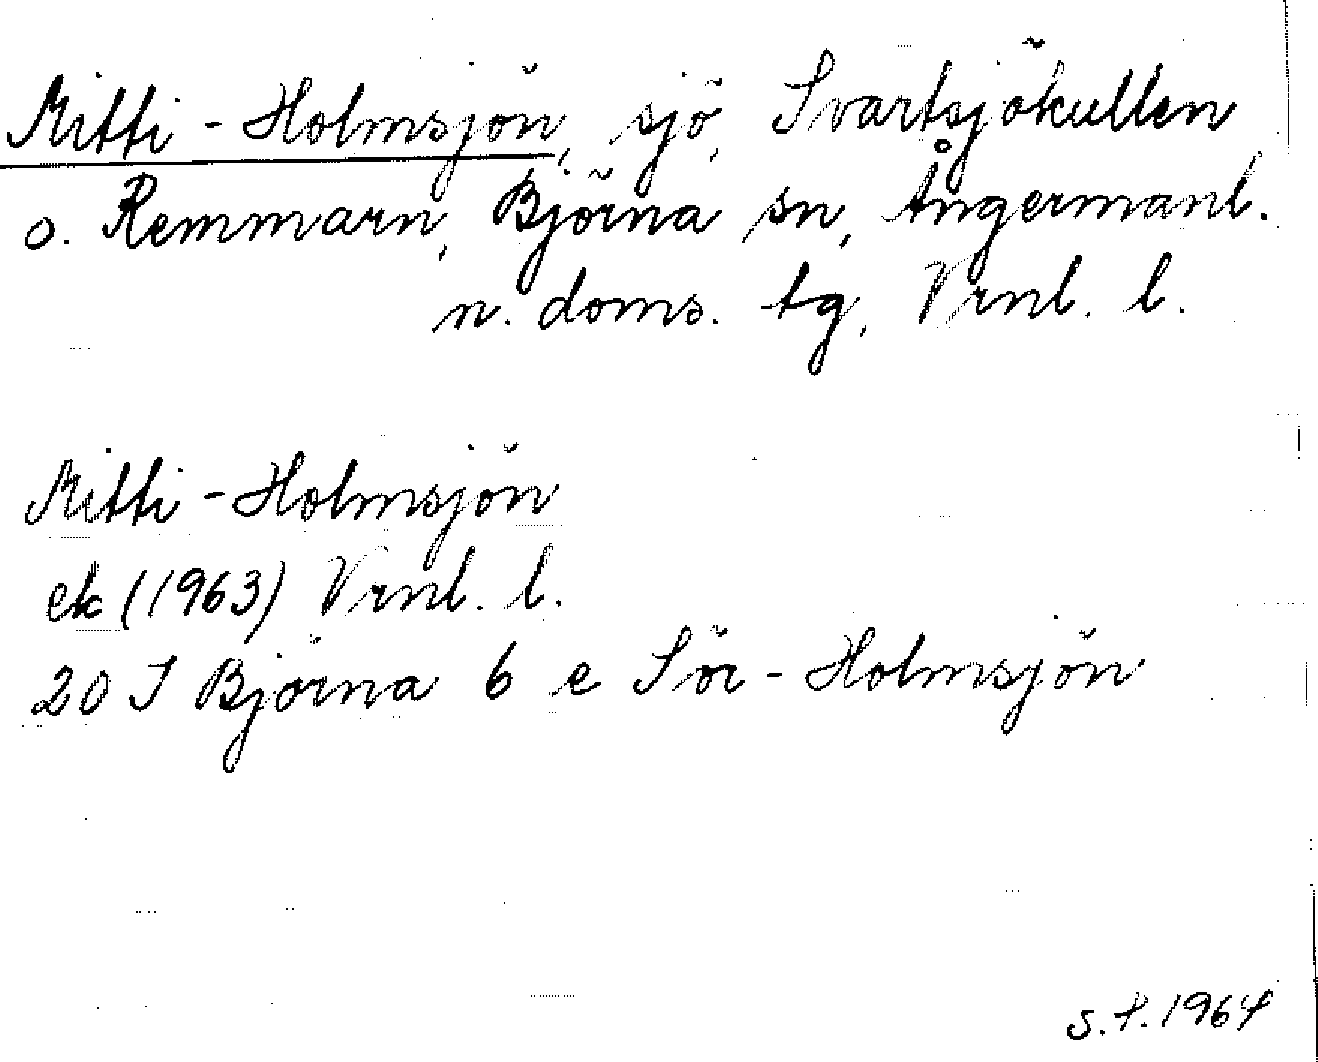 Mitti-Holmsjön, sjö, Svartsjökullen
o. Remmarn, Björna sn, Ångermanl.
n. doms. tg, Vrnl. l.
Mitti-Holmsjön
ek (1963) Vrnl. l.
20 I Björna 6 e Sör-Holmsjön
S.f. 1964